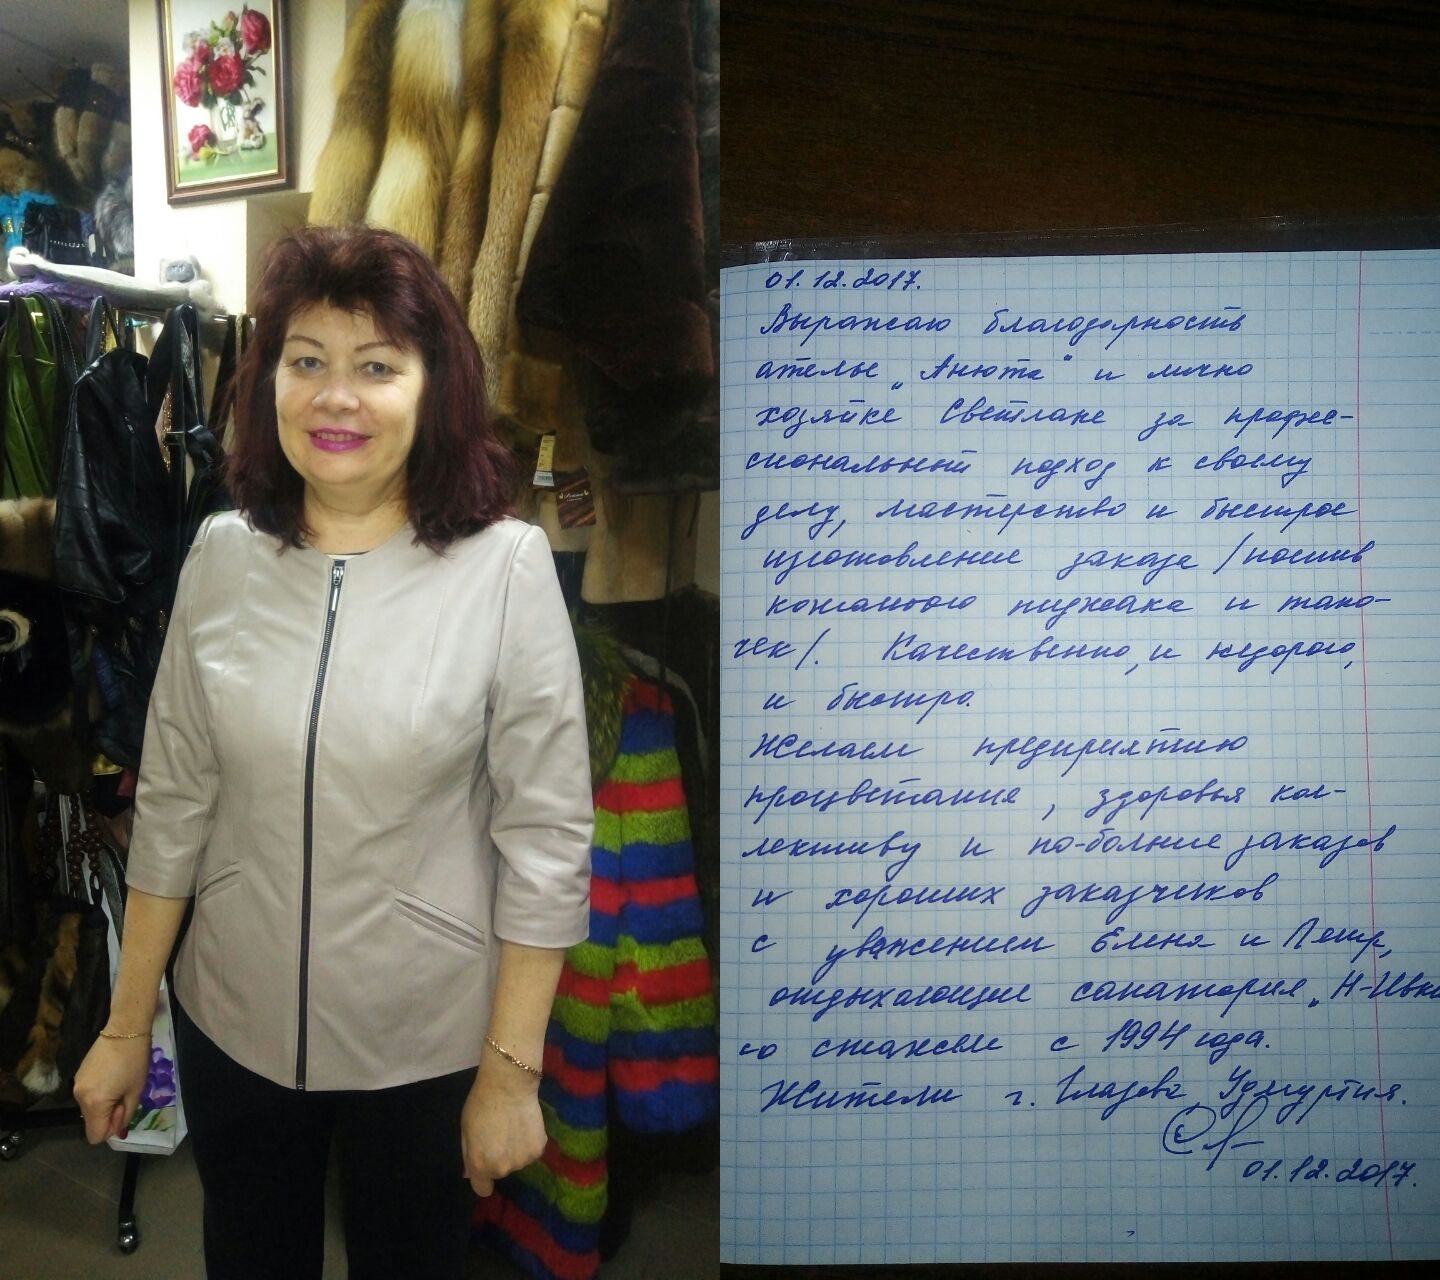 01.12.2017.
Выражаю благодарность
ателье „Анюта“ и лично
хозяйке Светлане за профес-
сиональный подход к своему
делу, мастерство и быстрое
изготовление заказа /пошив
кожаного пиджака и тапо-
чек/. Качественно, и недорого,
и быстро.
Желаем предприятию
процветания, здоровья кол-
лективу и по-больше заказов
и хороших заказчиков
с уважением Елена и Петр,
отдыхающие санатория „Н-Ивки
со стажем с 1994 года.
Жители г. Глазова Удмуртия.
01.12.2017.